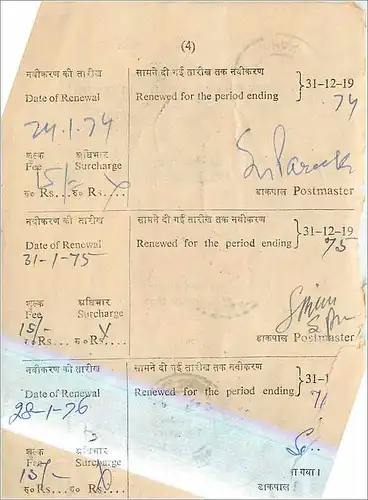 (4)
नवीकरण की तारीख सामने दी गई तारीख तक नवीकरण
Date of Renewal Renewed for the period ending } 31-12-19
24.1.74 74
शुल्क अधिभार
Fee Surcharge
15/- X
रु० Rs.... रु० Rs.... डाकपाल Postmaster
नवीकरण की तारीख सामने दी गई तारीख तक नवीकरण
Date of Renewal Renewed for the period ending } 31-12-19
31-1-75 75
शुल्क अधिभार
Fee Surcharge
15/- X
रु० Rs.... रु० Rs.... डाकपाल Postmaster
नवीकरण की तारीख सामने दी गई तारीख तक नवीकरण
Date of Renewal Renewed for the period ending } 31-1
28-1-76
शुल्क अधिभार
Fee Surcharge
15/- ा गया।
रु० Rs.... रु० Rs.... डाकपाल